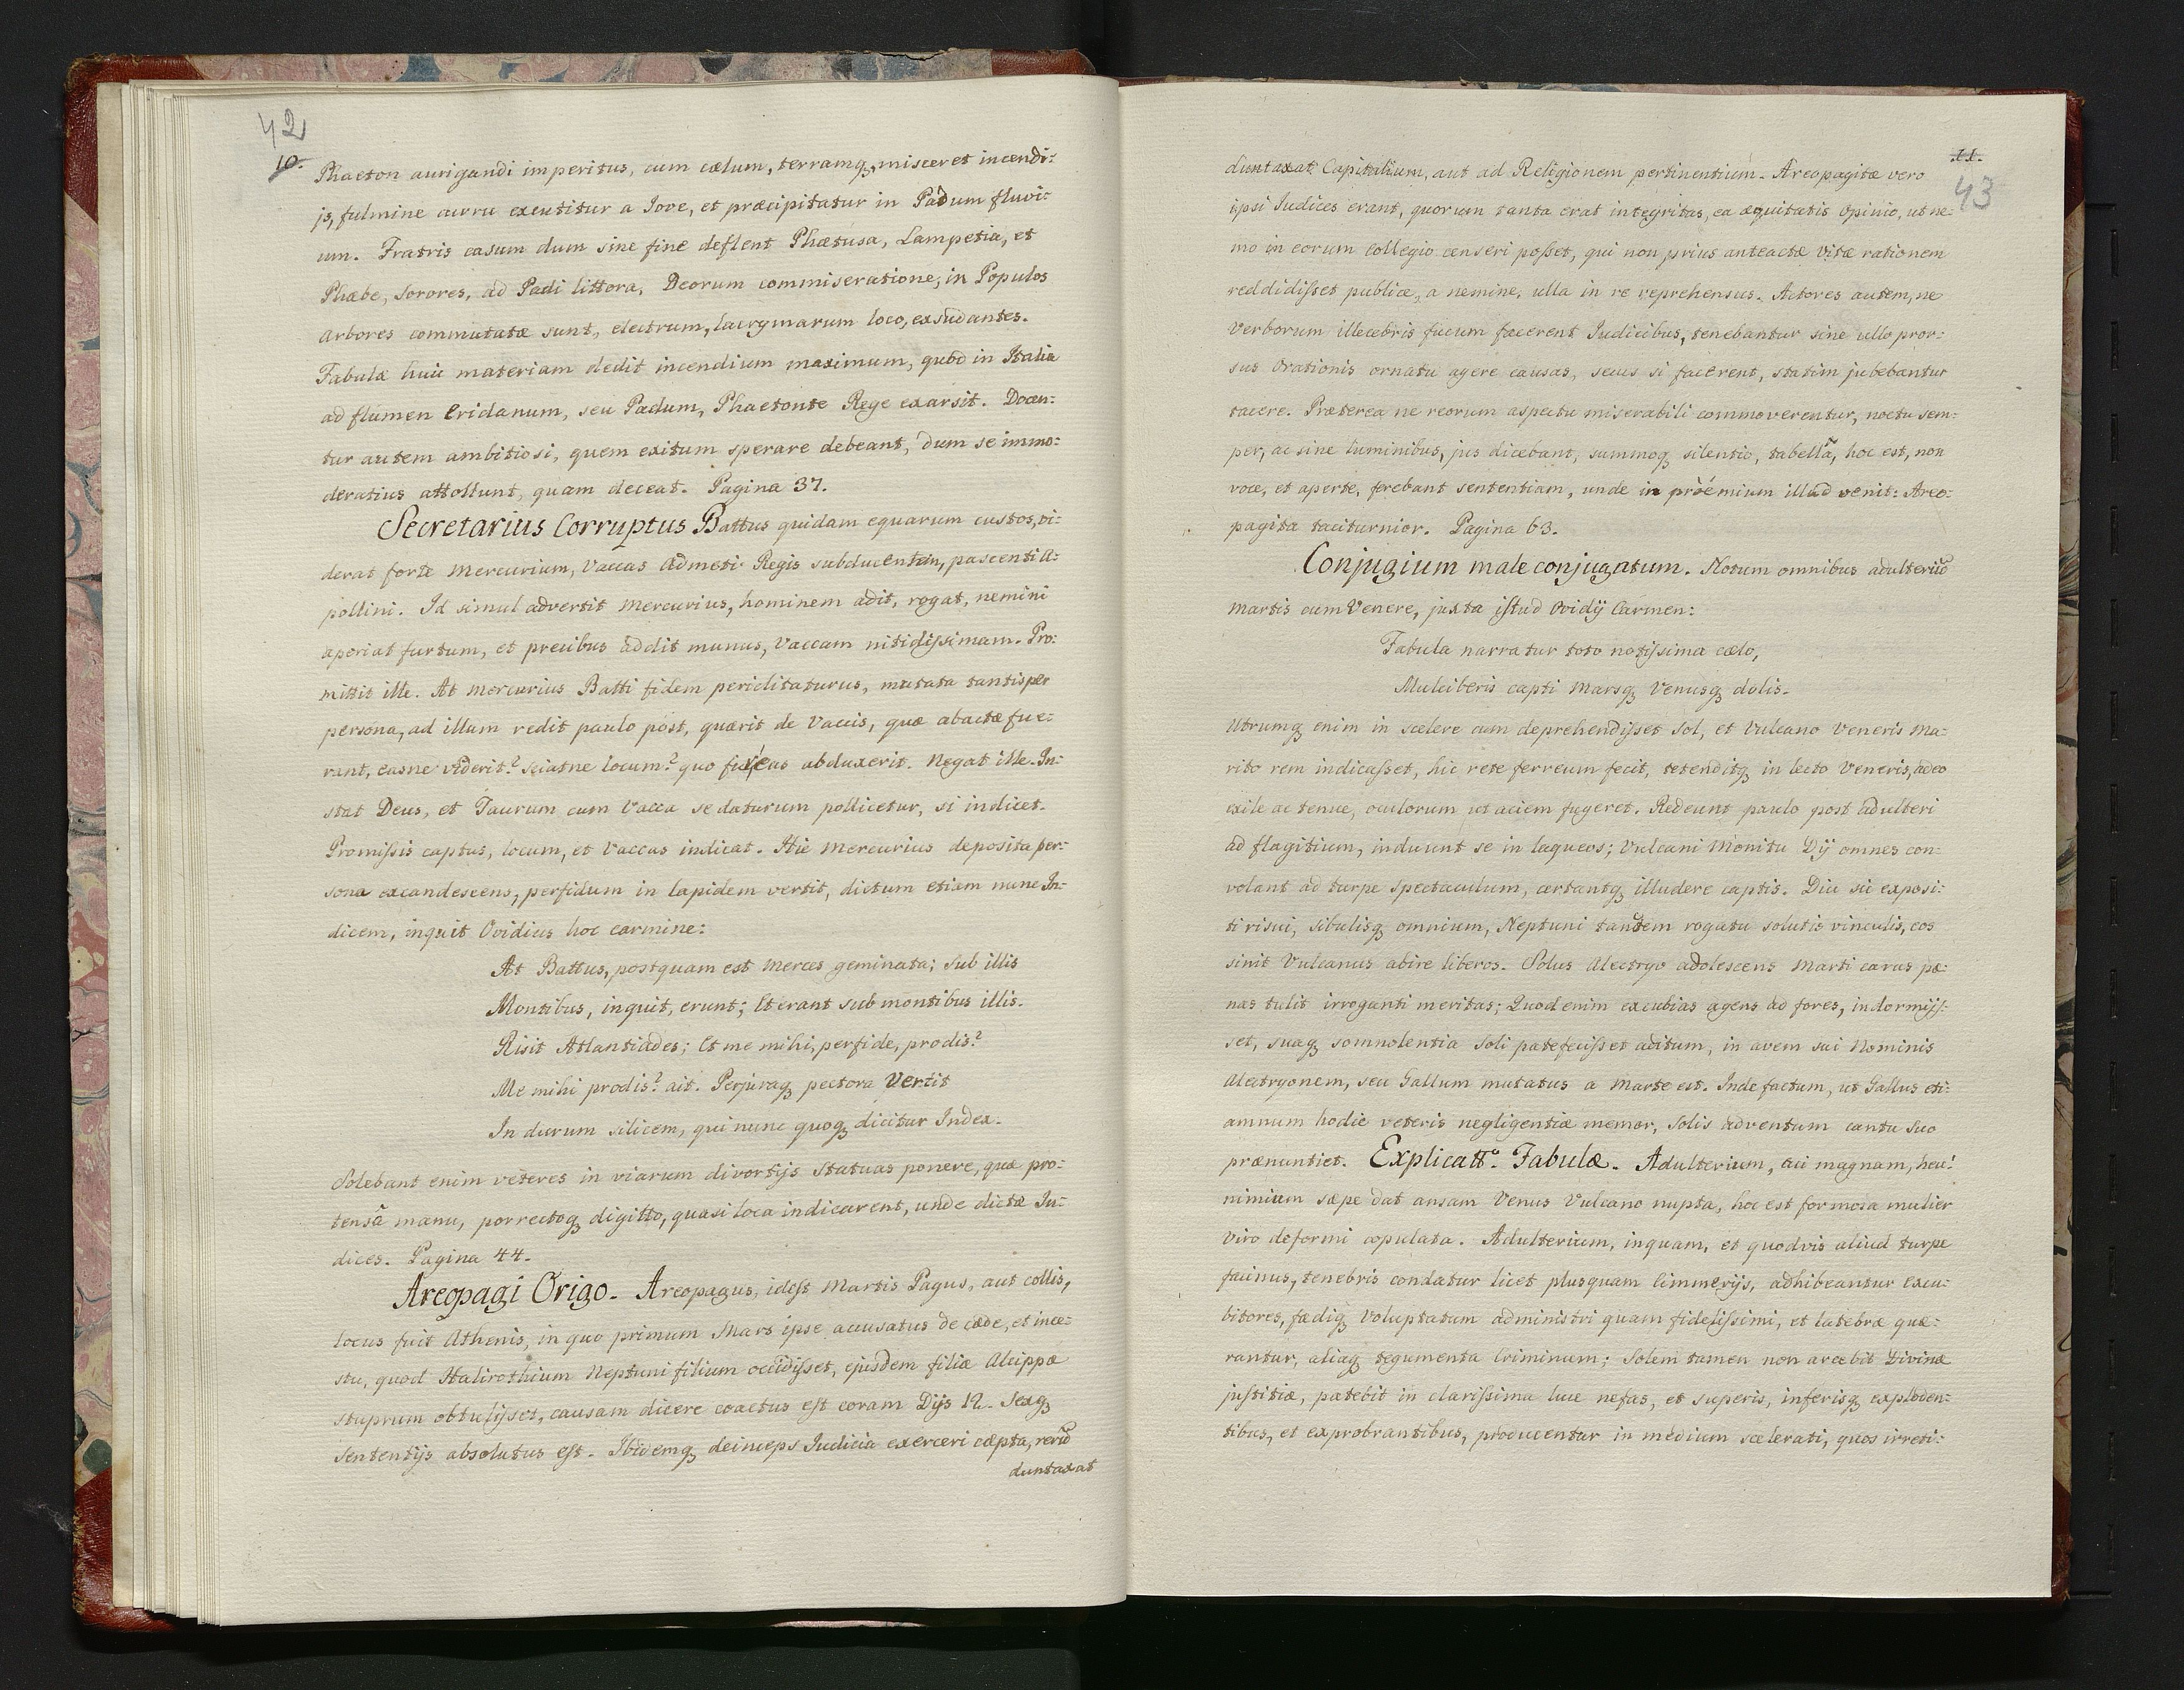 42
10.
Phaeton aurigandi imperitus, cum cælum, terramq, misceret incendi:
js, fulmine curru excutitur a Jove, et præcipitatur in Padum fluvi:
um. Fratris casum dum sine fine deflent Phætusa, Lampetia, et
Phæbe, sorores, ad Padi littora, Deorum commiseratione, in Populos
arbores commutatæ sunt, electrum, lacrymarum loco, exsudantes.
Fabulæ huic materiam dedit incendium maximum, quod in Italia
ad flumen Eridanum, seu Padum, Phaetonte Rege exarsit. Docen:
tur autem ambitiosi, quem exitum sperare debeant, dum se immo:
deratius attollunt, quam deceat. Pagina 37.
Secretarius Corruptus Battus quidam equarum custos, vi:
derat forte Mercurium, Vaccas Admeti Regis subducentem, pascenti A:
pollini. Id simul advertit Mercurius, hominem adit, rogat, nemini
aperiat furtum, et precibus addit munus, Vaccam nitidissimam. Pro:
mittit ille. At Mercurius Batti fidem periclitaturus, mutata tantisper
persona, ad illum redit paulo post, quærit de Vaccis, quæ abactæ fue:
rant, easne viderit? sciatne locum? quo eas abduxerit. Negat ille. In:
stat Deus, et Taurum cum Vacca se daturum pollicetur, si indicet.
Promissis captus, locum, et Vaccas indicat. Hic Mercurius deposita per:
sona excandescens, perfidum in lapidem vertit, dictum etiam nunc In:
dicem, inquit Ovidius hoc carmine:
At Battus, postquam est merces geminata; sub illis
Montibus, inquit, erunt; Et erant sub montibus illis.
Risit Atlantiades; Et me mihi, perfide, prodis?
Me mihi prodis? ait. Perjuraq pectora Vertit
In durum silicem, qui nunc quoq dicitur Index.
Solebant enim veteres in viarum divortijs statuas ponere, quæ pro:
tensâ manu, porrectoq digitto, quasi loca indicarent, unde dictæ In:
dices. Pagina 44.
Areopagi Origo. Areopagus, idest Martis Pagus, aut collis,
locus fuit Athenis, in quo primum Mars ipse accusatus de cæde, et ince:
stu, quod Halirothium Neptuni filium occidisset, ejusdem filiæ Alcippæ
stuprum obtulisset, causam dicere coactus est coram Dijs 12. Sexq
sententijs absolutus est. Ibidemq deinceps Judicia exerceri cæpta, rerũ
duntaxat
11.
43
duntaxat Capitalium, aut ad Religionem pertinentium. Areopagitæ vero
ipsi Judices erant, quorum tanta erat integritas, ea æquitatis opinio, ut ne:
mo in eorum collegio censeri posset, qui non prius anteactæ vitæ rationem
reddidisset publice, a nemine, ulla in re reprehensus. Actores autem, ne
Verborum illecebris fucum facerent Judicibus, tenebantur sine ullo pror:
sus Orationis ornatu agere causas, secus si facerent, statim jubebantur
tacere. Præterea ne reorum aspectu miserabili commoverentur, noctu sem:
per, ac sine luminibus, jus dicebant, summoq silentio, tabellâ, hoc est, non
voce, et aperte, ferebant sententiam, unde in proemium illud venit: Areo:
pagita taciturnior. Pagina 63.
Conjugium male conjugatum. Notum omnibus adulteriũ
Martis cum Venere, juxta istud Ovidij Carmen:
Fabula narratur toto notissima cælo,
Mulciberis capti Marsq Venusq dolis.
Utrumq enim in scelere cum deprehendisset Sol, et Vulcano Veneris ma:
rito rem indicasset, hic rete ferreum fecit, tetenditq in lecto Veneris, adeo
exile ac tenue, oculorum ut aciem fugeret. Redeunt paulo post adulteri
ad flagitium, induunt se in laqueos; Vulcani Monitu Dij omnes con:
volant ad turpe spectaculum, certantq illudere captis. Diu sic exposi:
ti risui, sibilisq omnium, Neptuni tandem rogatu solutis vinculis, eos
sinit Vulcanus abire liberos. Solus Alectryo adolescens Marti carus pæ:
nas tulit irroganti meritas; Quod enim excubias agens ad fores, indormijs:
set, suaq somnolentia Soli patefecisset aditum, in avem sui Nominis
Alectryonem, seu Gallum mutatus a Marte est. Inde factum, ut Gallus eti:
amnum hodie veteris negligentiæ memor, Solis adventum cantu suo
prænuntiet. Explicattº. Fabulæ. Adulterium, cui magnam, heu!
nimium sæpe dat ansam Venus Vulcano nupta, hoc est formosa mulier
viro deformi copulata. Adulterium, inquam, et quodvis aliud turpe
facinus, tenebris condatur licet plusquam Cimmerijs, adhibeantur excu:
bitores, fædiq Voluptatum administri quam fidelissimi, et latebræ quæ:
rantur, aliaq tegumenta Criminum; Solem tamen non arcebit Divinæ
justitiæ, patebit in clarissima luce nefas, et superis, inferisq exploden:
tibus, et exprobrantibus, producentur in medium scelerati, quos irreti: